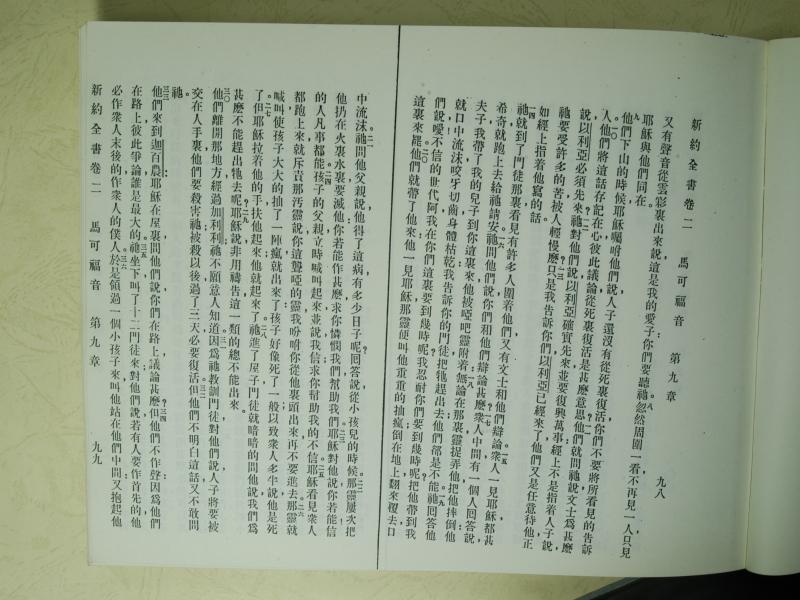 新約全書卷二　馬可福音　第九章　九八
又有聲音從雲彩裏出來說這是我的愛子你們要聽祂忽然周圍一看不再見一人只見
耶穌與他們同在
他們下山的時候耶穌囑咐他們說人子還沒有從死裏復活你們不要將所看見的告訴
人他們將這話存記在心彼此議論從死裏復活是甚麼意思他們就問祂說文士爲甚麼
說以利亞必須先來祂對他們說以利亞確實先來並要復興萬事經上不是指着人子說
祂要受許多的苦被人輕慢麼只是我告訴你們以利亞已經來了他們又是任意待他正
如經上指着他寫的話
祂就到了門徒那裏看見有許多人圍着他們又有文士和他們辯論衆人一見耶穌都甚
希奇就跑上去給祂請安祂問他們說你們和他們辯論甚麼衆人中間有一個人回答說
夫子我帶了我的兒子到你這裏來他被啞吧靈附着無論在那裏靈捉弄他把他摔倒他
就口中流沫咬牙切齒身體枯乾我告訴你的門徒把牠趕出去他們都是不能祂回答他
們說噯不信的世代阿我在你們這裏要到幾時呢我忍耐你們要到幾時呢把他帶到我
這裏來罷他們就帶了他來他一見耶穌那靈便叫他重重的抽瘋倒在地上翻來覆去口
中流沫祂問他父親說他得了這病有多少日子呢回答說從小孩兒的時候那靈屢次把
他扔在火裏水裏要滅他你若能作甚麼求你憐憫我們幫助我們耶穌對他說你若能信
的人凡事都能孩子的父親立時喊叫起來並說我信求你幫助我的不信耶穌看見衆人
都跑上來就斥責那汚靈說你這聾啞的靈我吩咐你從他裏頭出來再不要進去那靈就
喊叫使孩子大大的抽了一陣瘋就出來了孩子好像死了一般以致衆人多半說他是死
了但耶穌拉着他的手扶他起來他就起來了祂進了屋子門徒就暗暗的問他說我們爲
甚麼不能趕出牠去呢耶穌說非用禱告這一類的總不能出來
他們離開那地方經過加利利祂不願意人知道因爲祂教訓門徒對他們說人子將要被
交在人手裏他們要殺害祂被殺以後過了三天必要復活但他們不明白這話又不敢問
祂
他們來到迦百農耶穌在屋裏問他們說你們在路上議論甚麼但他們不作聲因爲他們
在路上彼此爭論誰是最大的祂坐下叫了十二門徒來對他們說若有人要作首先的他
必作衆人末後的作衆人的僕人於是領過一個小孩子來叫他站在他們中間又抱起他
新約全書卷二　馬可福音　第九章　九九